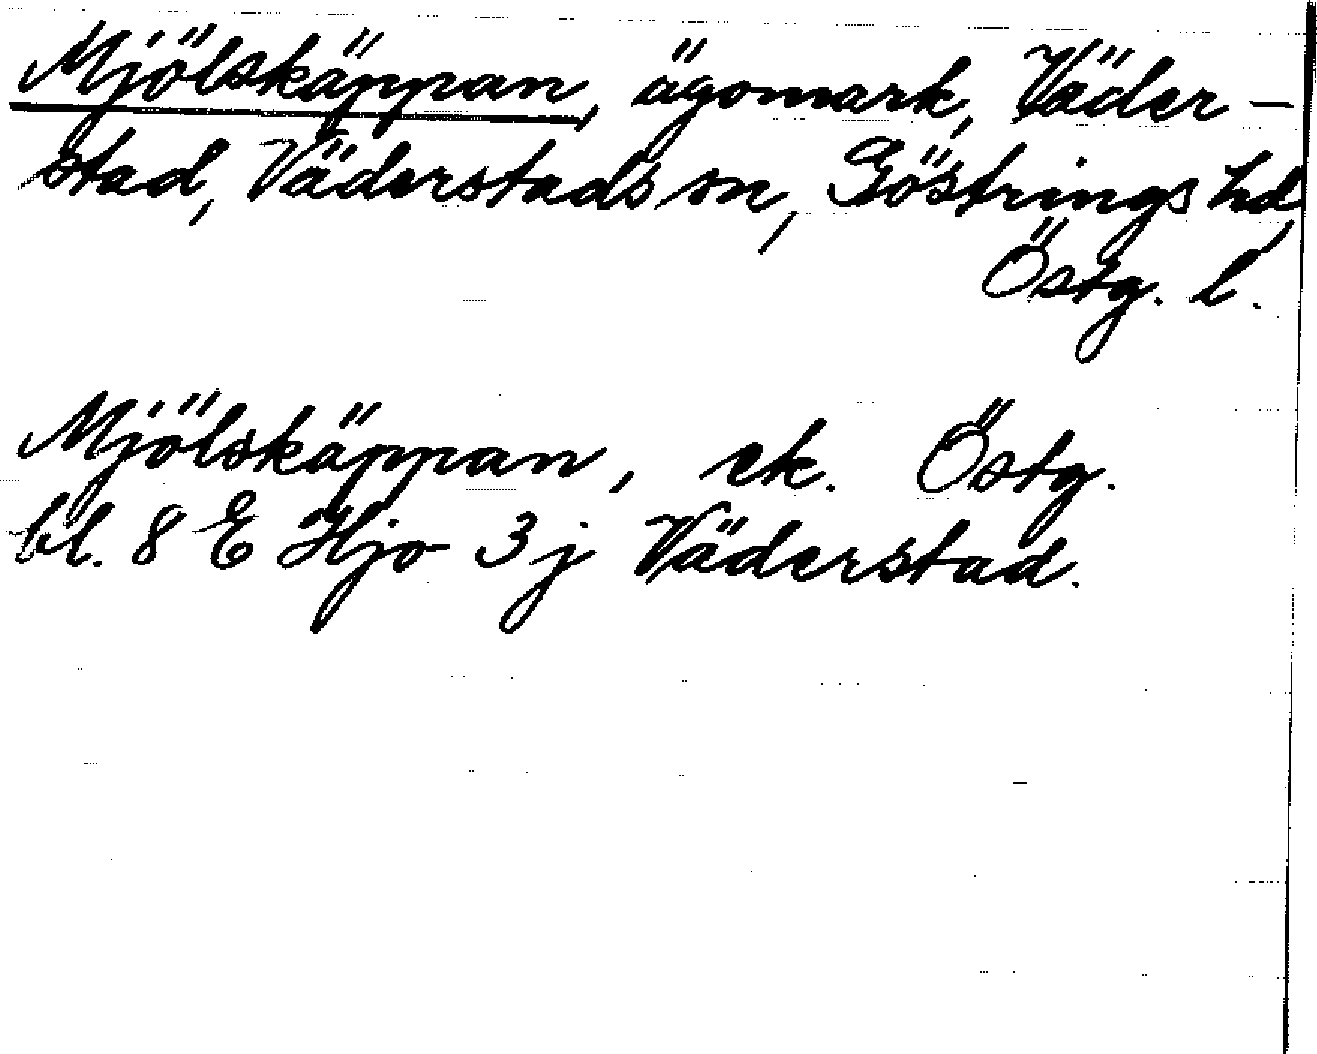 Mjölskäppan, ägomark, Väder-
stad, Väderstads sn, Göstrings hd,
Östg. l.
Mjölskäppan, ek. Östg.
bl. 8 E Hjo 3j Väderstad.